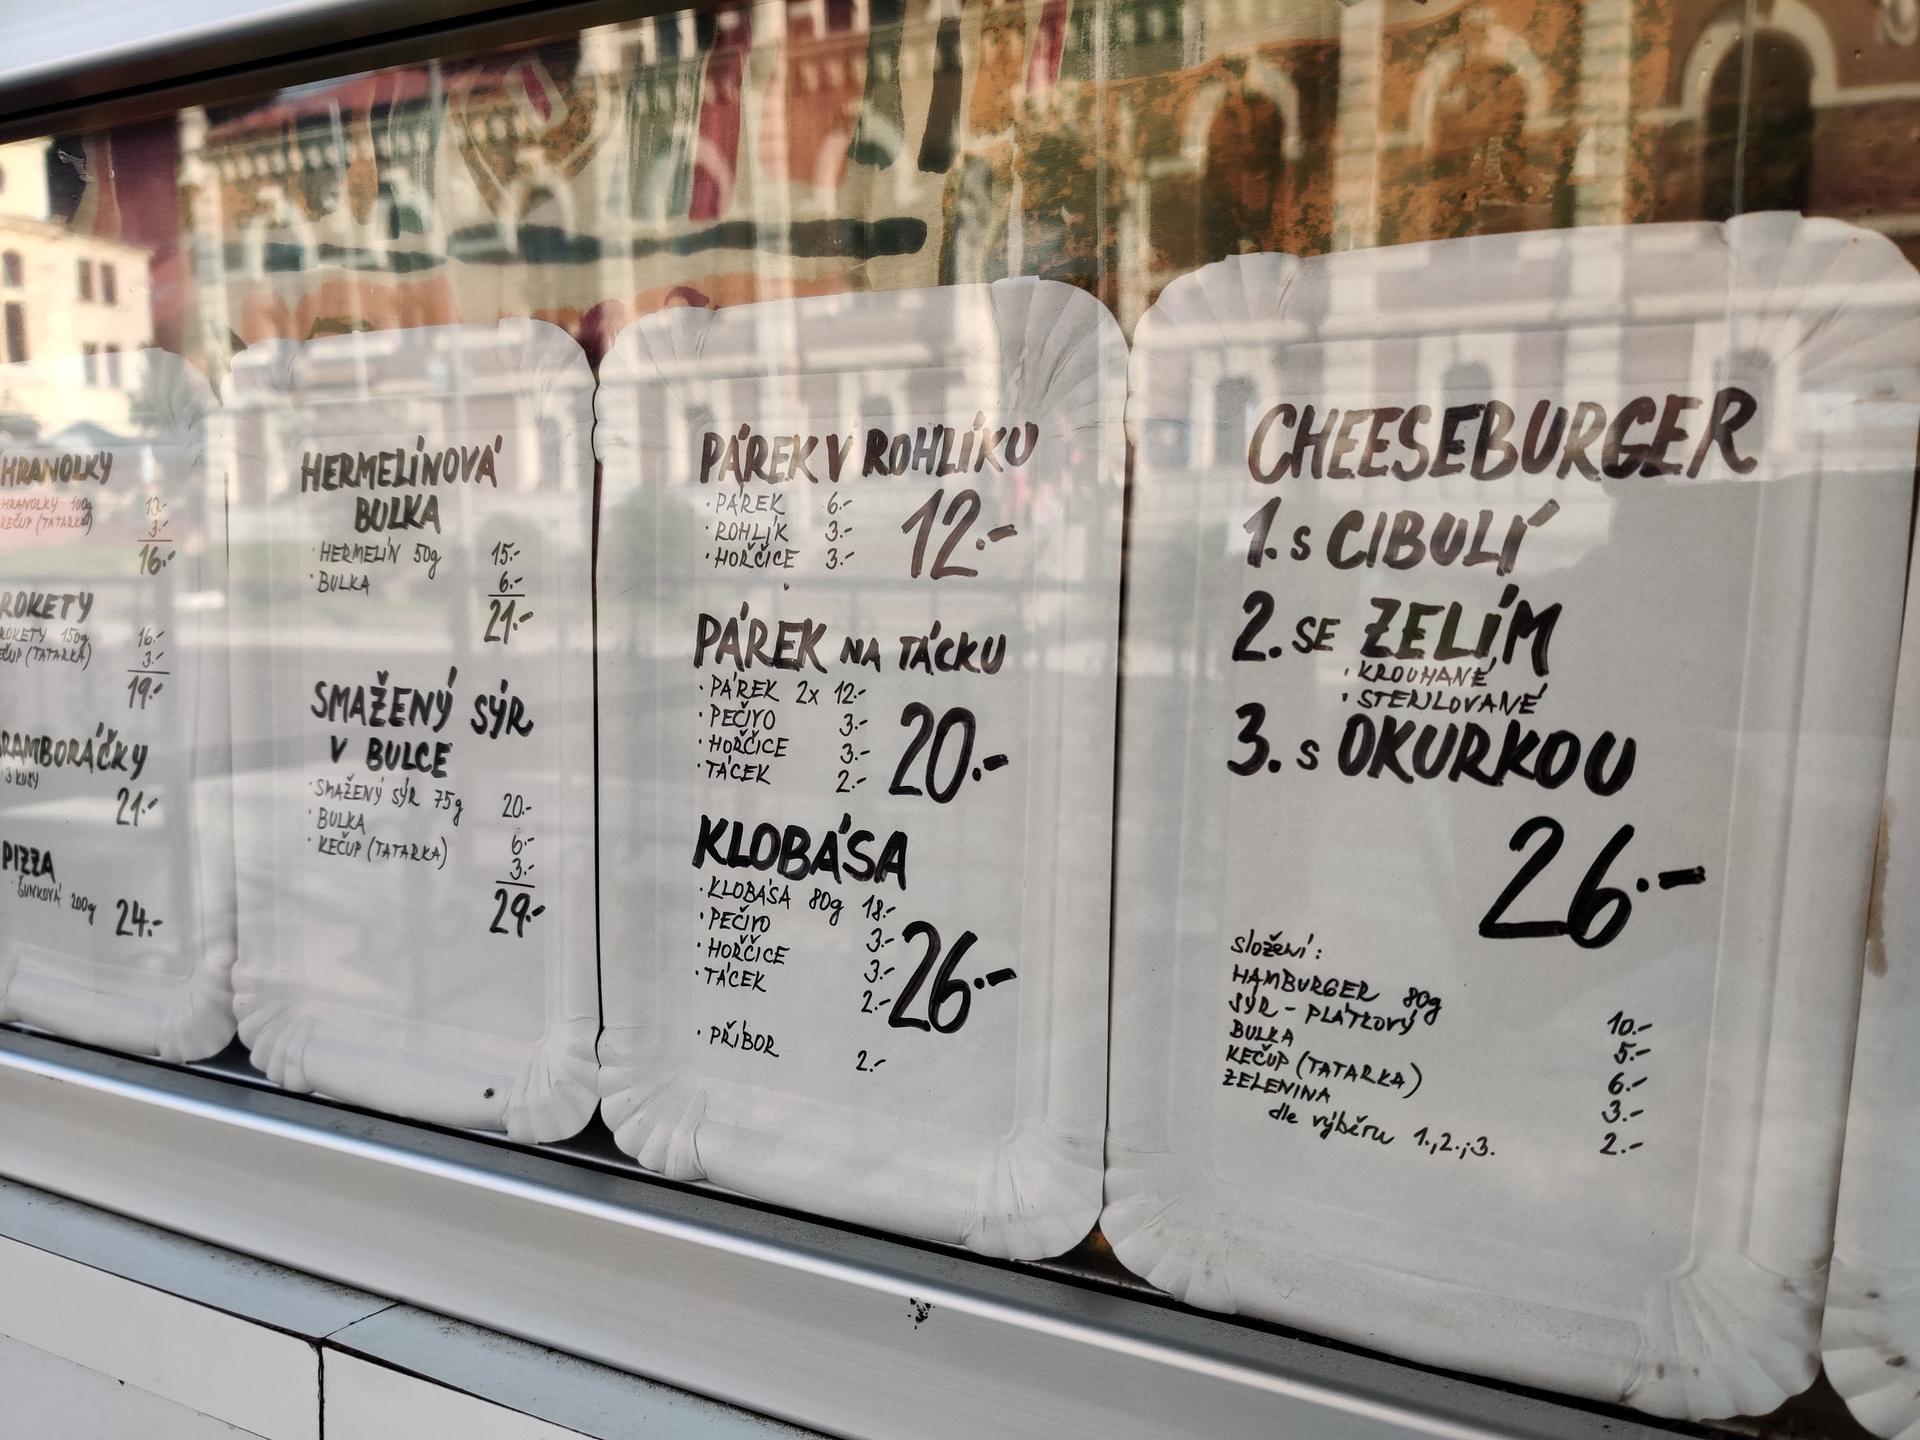 HRANOLKY
HRANOLKY 100g 13.-
KEČUP (TATARKA) 3.-
16.-
ROKETY
ROKETY 150g 16.-
KEČUP (TATARKA) 3.-
19.-
BRAMBORÁČKY
· 3 KUSY
21.-
PIZZA
· ŠUNKOVÁ 200g 24.-
HERMELÍNOVÁ
BULKA
· HERMELÍN 50g 15.-
· BULKA 6.-
21.-
SMAŽENÝ SÝR
V BULCE
· SMAŽENÝ SÝR 75g 20.-
· BULKA 6.-
· KEČUP (TATARKA) 3.-
29.-
PÁREK V ROHLÍKU
· PÁREK 6.-
· ROHLÍK 3.-
· HOŘČICE 3.-
12.-
PÁREK NA TÁCKU
· PÁREK 2x 12.-
· PEČIVO 3.-
· HOŘČICE 3.-
· TÁCEK 2.-
20.-
KLOBÁSA
· KLOBÁSA 80g 18.-
· PEČIVO 3.-
· HOŘČICE 3.-
· TÁCEK 2.-
26.-
· PŘÍBOR 2.-
CHEESEBURGER
1. S CIBULÍ
2. SE ZELÍM
· KROUHANÉ
· STERILOVANÉ
3. S OKURKOU
26.-
složení:
HAMBURGER 80g 10.-
SÝR - PLÁTKOVÝ 5.-
BULKA 6.-
KEČUP (TATARKA) 3.-
ZELENINA 2.-
dle výběru 1.,2.,3.